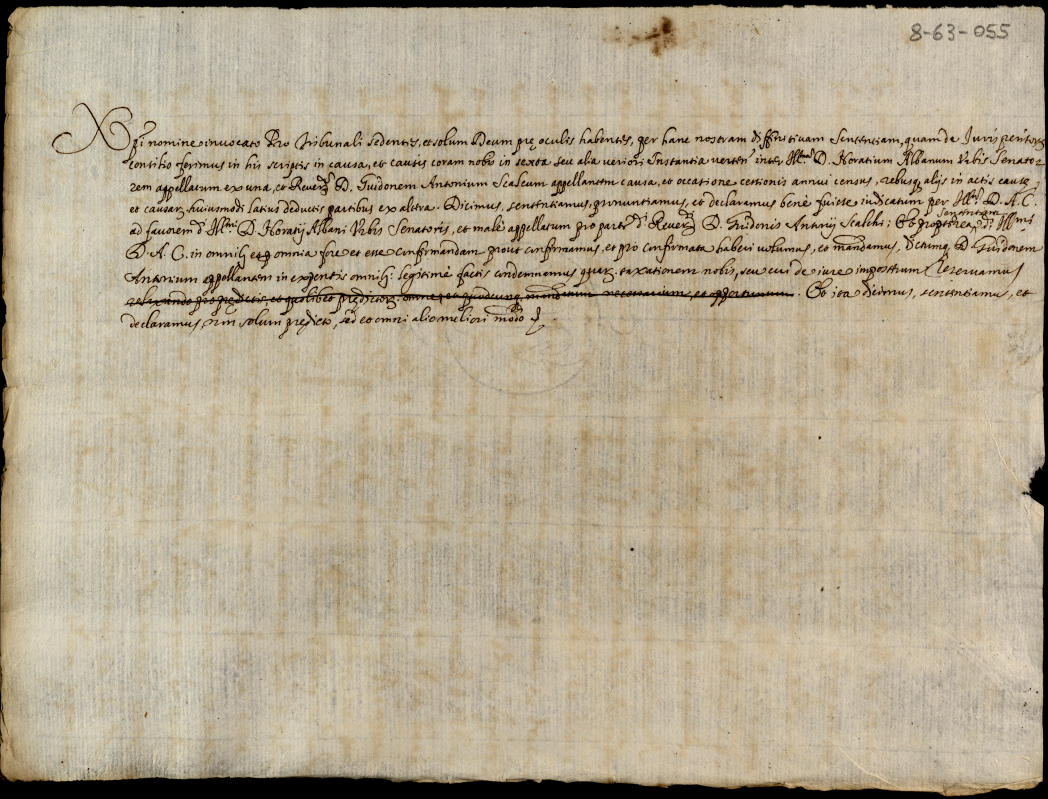 8-63-055
Xpi nomine invocato Pro Tribunali sedentes, et solum Deum prę oculis habentes, per hanc nostram diffinitivam Sententiam, quam de Juris peritorum
consilio ferimus in his scriptis in causa, et causis coram nobis in sexta seu alia veriori Instantia verten. inter Illmum D. Horatium Albanum Urbis Senato
rem appellatum ex una, et Reverm D. Guidonem Antonium Scalcum appellantem causa, et occasione cessionis annui census, rebusq alijs in actis causę,
et causarum huiusmodi latius deductis partibus ex altera. Dicimus, sententiamus, pronuntiamus, et declaramus bene fuisse iudicatum per Illm D. A. C.
ad favorem di Illmi D. Horatij Albani Urbis Senatoris, et male appellatum pro parte di Reverdi D. Guidonis Antonij Scalchi; Et propterea sententiam di Illmi
D. A. C. in omnibus et p omnia fore et esse confirmandam prout confirmamus, et pro confirmata haberi volumus, et mandamus, dictumq D. Guidonem
Antonium appellantem in expensis omnibus legitime factis condemnamus quarum taxationem nobis, seu cui de iure imposterum reservamus
relaxando pro prędictis, et quolibet prędictorum omne, et quodcunq mandatum necessarium, et opportunum. Et ita dicimus, sententiamus, et
declaramus, non solum prędicto, sed et omni alio meliori modo